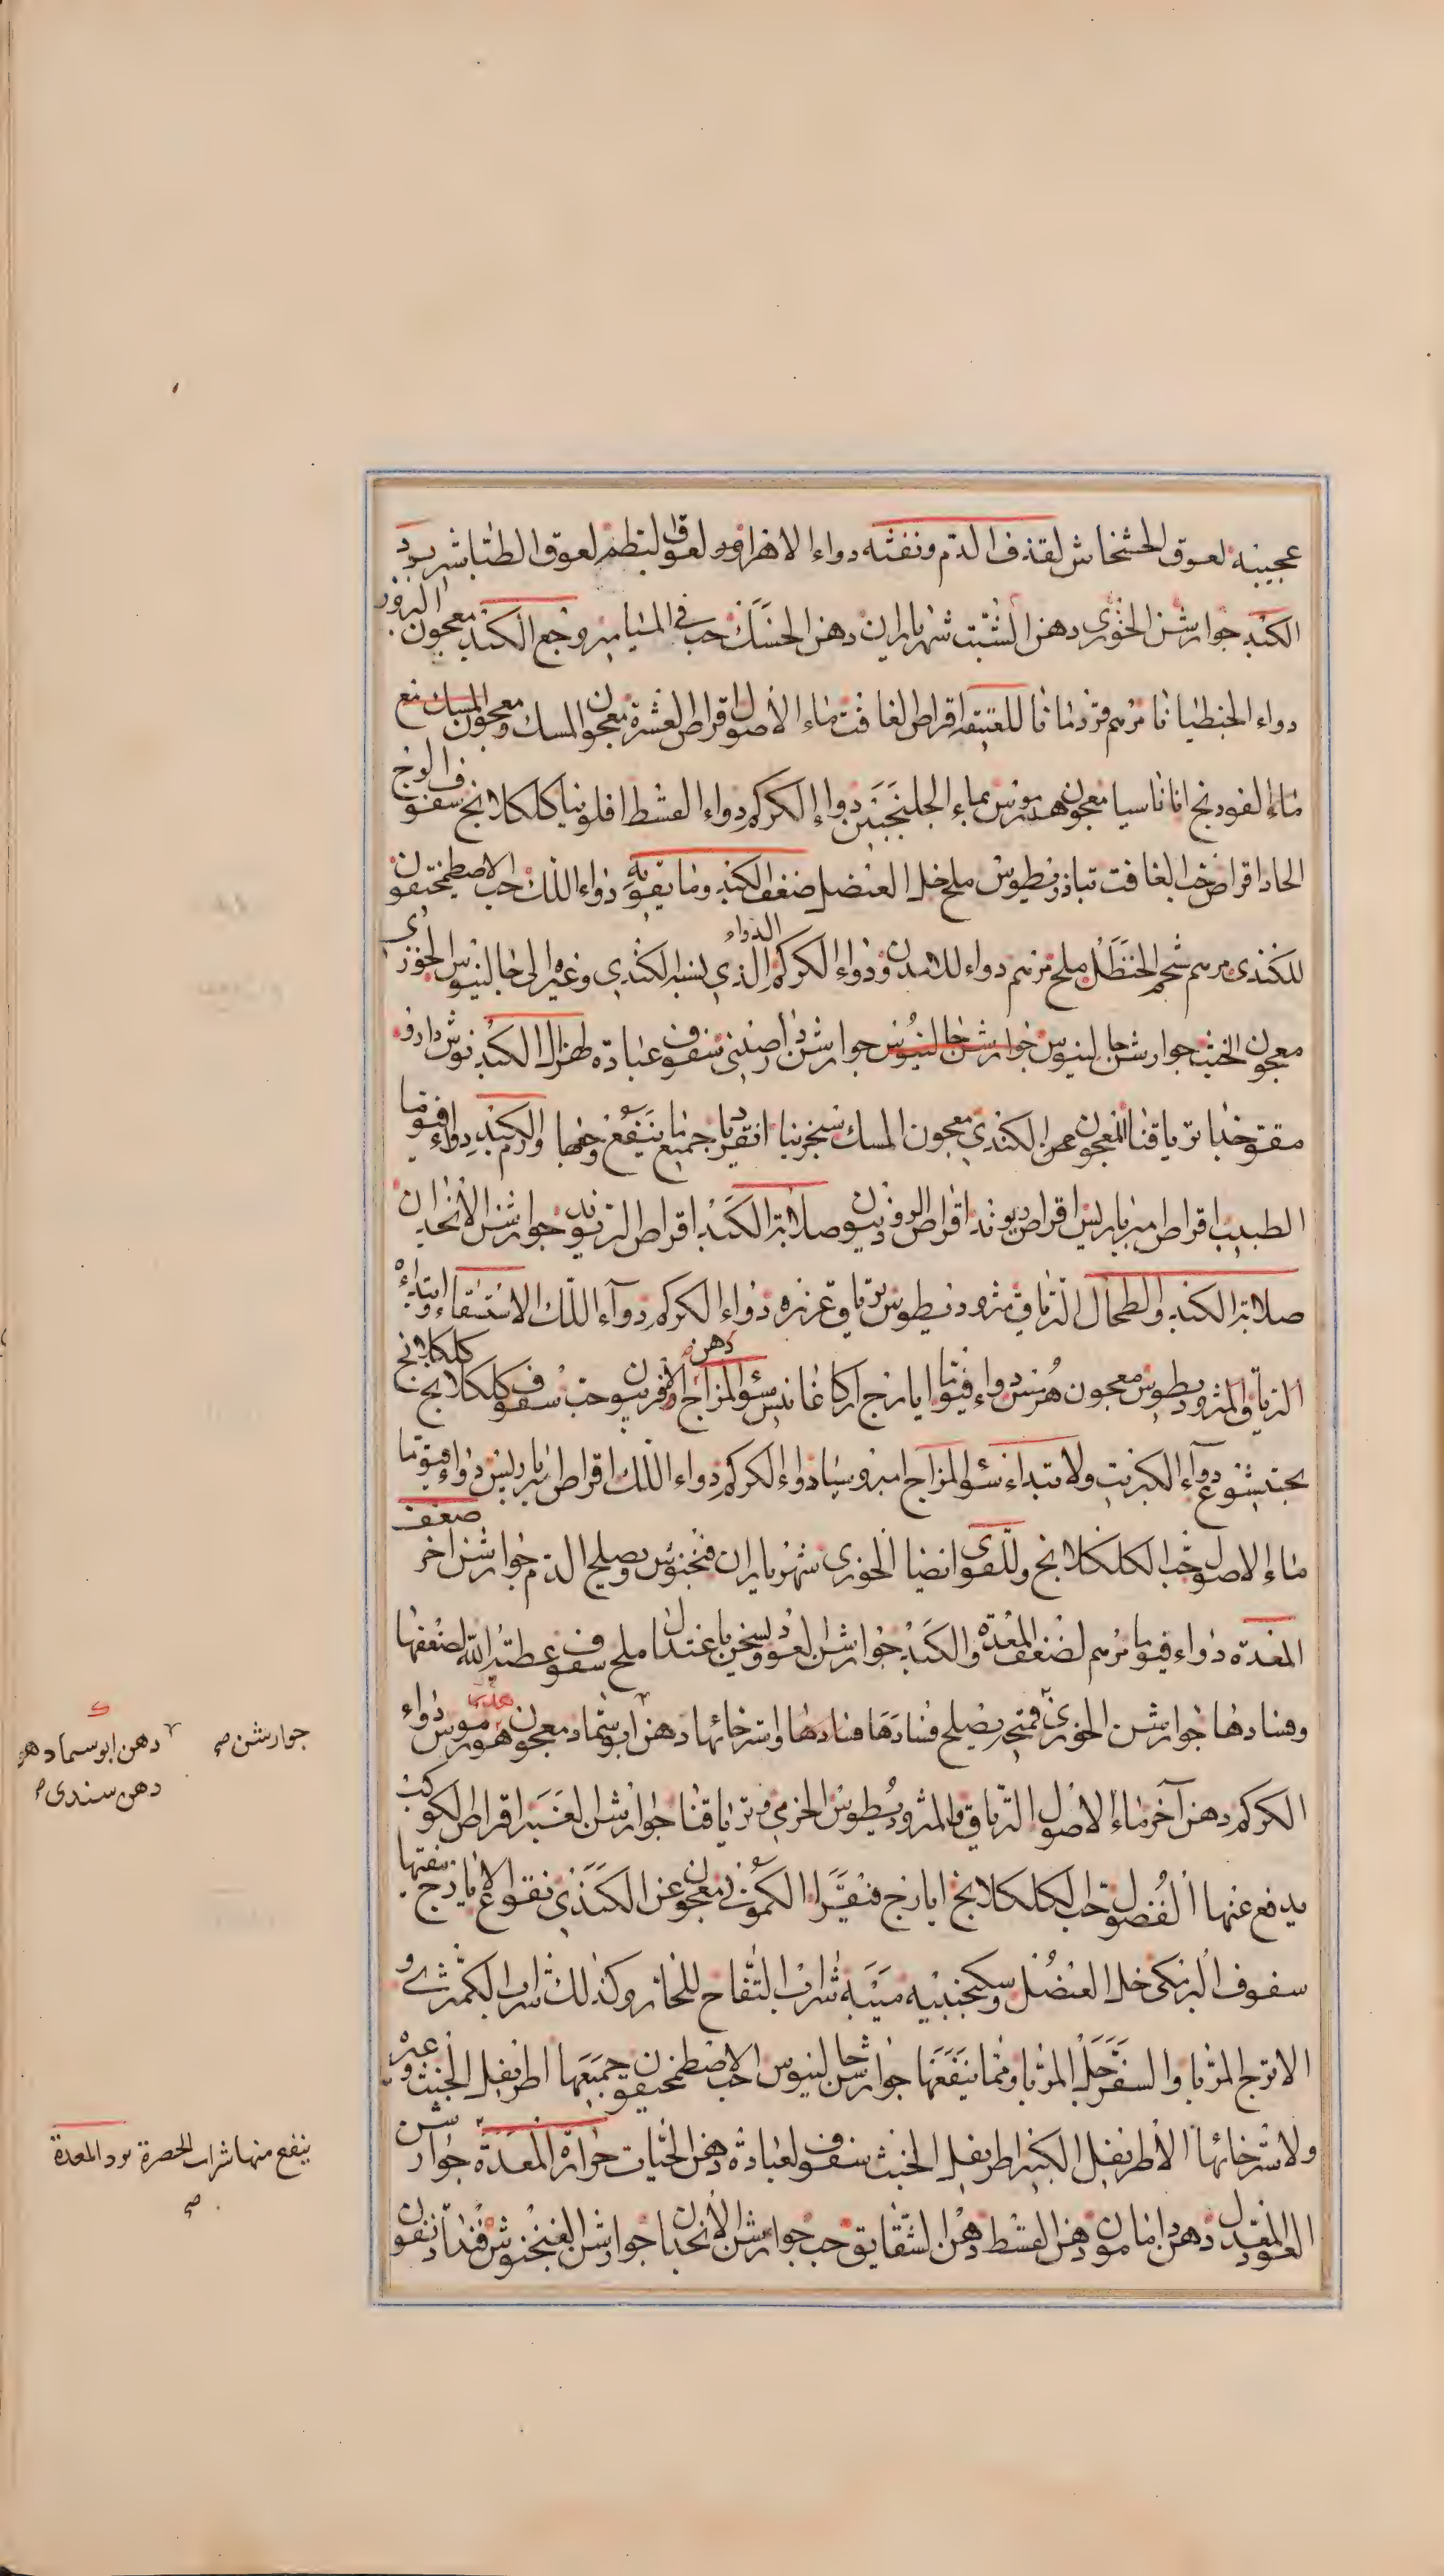 عجيبة لعوق الخشخاش لقذف الدم ونفثه دواء الاهرا لعوق لبطم لعوق الطباشير برد
الكبد جوارشن الخوزى دهن الشبت شهرياران دهن الحسك حب فى الميامير وجع الكبد معجون البزور
دواء الجنطيانا مرهم قردمانا للعتيقة اقراص الغافت ماء الأصول اقراص العشرة معجون المسك ومعجون المسك مع
ماء الفودنج اناناسيا معجون هرمس بماء الجلنجبين دواء الكركم دواء القسط افلونيا كلكلانج سفوف الوج
الحاد اقراص حب الغافت تيادريطوس ملح خل العنصل ضعف الكبد وما يقويه دواء اللك حب الاصطمخيقون
للكندى مرهم شحم الحنظل ملح مرهم دواء للامدن ودواء الكركم الدواء الذي ينسبه الكندي وغيره الى جالينوس الخوزى
معجون الخبث جوارشن جالينوس جوارشن جالينوس جوارشن سفوف عباده لهزال الكبد نوش دارو
مقوخيا ترياقنا المعجون عن الكندي معجون المسك سجزنيا انقرديا جميع ما ينفع وجعها والورم الكبد دواء فيوما
الطبيب اقراص اميرباريس اقراص ريوند اقراص الروذيون صلابة الكبد اقراص الريوند جوارشن الأنجدان
صلابة الكبد والطحال الترياق مثروديطوس ترياق عزره دواء الكركم دوآء اللك الاستسقاء وابتداءه
الترياق المثروديطوس معجون هرمس دواء فيوما ايارج اركاغانيس سئو المزاج دهن الافربيون حب سفوف كلكلانج كلكلانج
بختيشوع دوآء الكبريت ولابتداء سئو المزاج امبروسيا دواء الكركم دواء اللك اقراص اميرباريس دواء فيوما
ماء الاصول حب الكلكلانج وللقوى ايضا الخوزى شهرياران فنجنوش ويصلح الدم جوارشن اخر ضعف
المعدة دواء فيوما مرهم لضعف المعدة والكبد جوارشن العود ويسخن باعتدال ملح سفوف عطية الله لضعفها
وفسادها جوارشن الخوزى فمتحى يصلح فسادها فسادها واسترخائها دهن ابوسماد معجون هرمس دواء
الكركم دهن آخر ماء الأصول الترياق والمثروديطوس الخرمى وترياقنا جوارشن العنبر اقراص الكوكب
يدفع عنها الفضول حب الكلكلانج ايارج فيقرا الكمونى معجون عن الكندي نقوع الايارج ينقيها
سفوف البرمكى خل العنصل وسكنجبينه ميبه شراب التفاح للحار وكذلك شراب الكمثرى و
الاترج المربا والسفرجل المربا ومما ينفعها جوارشن جالينوس حب الاصطمخيقون جميعها اطريفل الخبث وغيره
ولاسترخائها الأطريفل الكبير اطريفل الخبث سفوف لعبادة دهن الحيات حرارة المعدة جوارشن
العود المعتدل دهن امامون دهن القسط دهن الشقايق حب جوارشن الأنجدان جوارشن الفنجنوش
جوارشن صح
دهن ابوسماد هو
دهن سندى
ينفع منها شراب الحصرة برد المعدة
صح